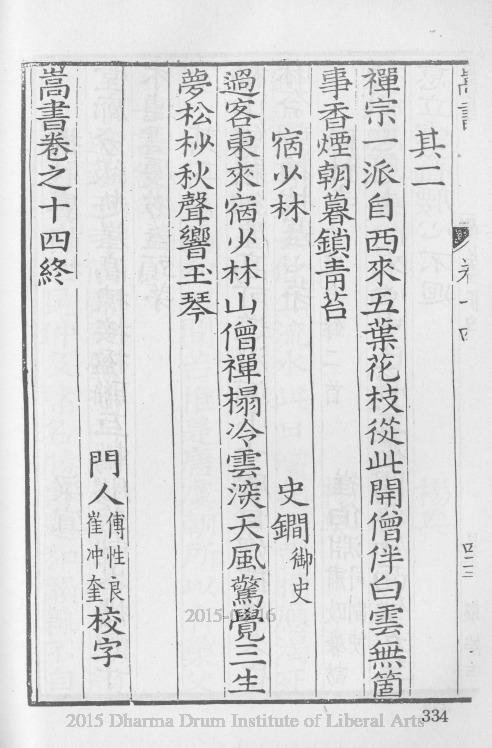 嵩書
卷十四
其二
禪宗一派自西來五葉花枝從此開僧伴白雲無箇
事香煙朝暮鎖青苔
宿少林 史鐧御史
過客東來宿少林山僧禪榻冷雲深天風驚覺三生
夢松杪秋聲響玉琴
門人傅性良崔冲奎校字
嵩書卷之十四終
334
2015 Dharma Drum Institute of Liberal Arts